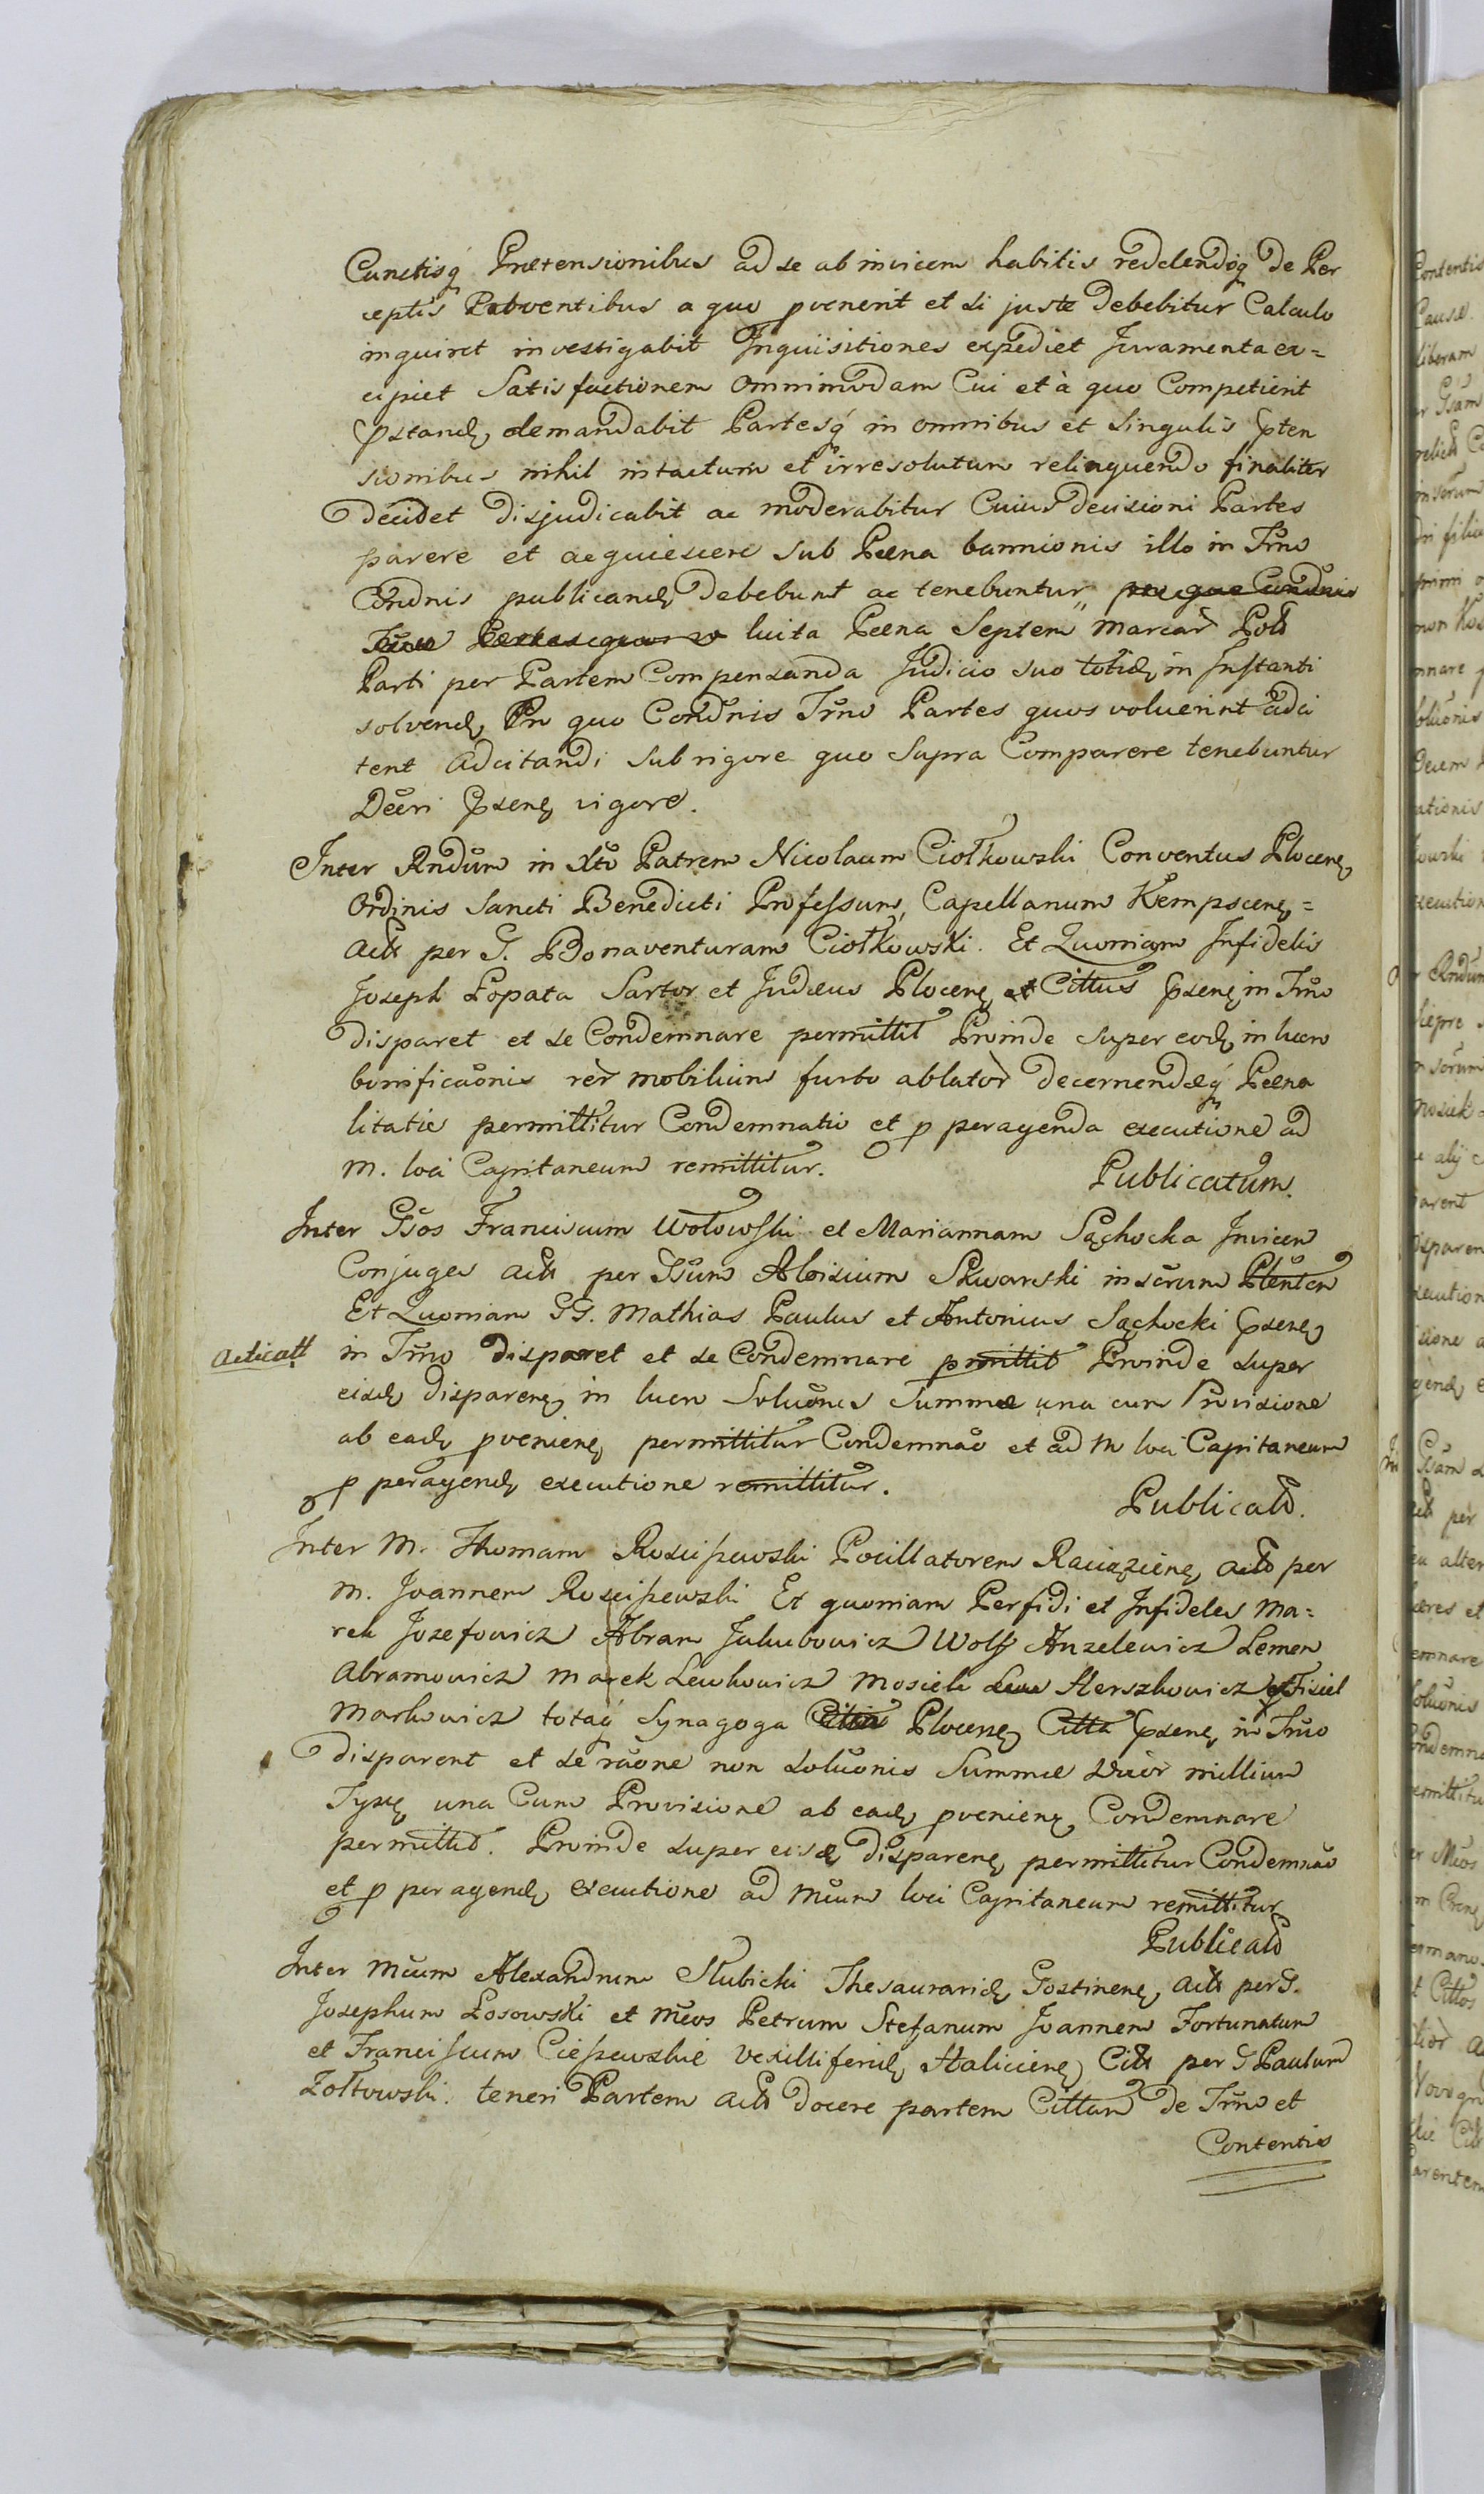 Cunctisq Prætensionibus ad se ab invicem habitis reddendoq de Per
ceptis Proventibus a quo pvenerit et si juste debebitur Calculo
inquiret investigabit Inquisitiones expediet Juramenta ex=
cipiet Satisfactionem Omnimodam Cui et à quo Competierit
pstand demandabit Partesq in omnibus et singulis pten
sionibus nihil intactum et irresolutum relinquendo finaliter
decidet disjudicabit ac moderabitur Cuius decisioni Partes
parere et acquiescere sub Pæna bannionis illo in Trno
Condnis publicand debebunt ac tenebuntur
luita Pæna Septem Marcar Pol
Parti per Partem Compensanda Judicio suo totid in Instanti
solvend In quo Condnis Trno Partes quos voluerint adci
tent Adcitandi sub rigore quo supra Comparere tenebuntur
Decri psene vigore.
Inter Rndum in Xto Patrem Nicolaum Ciołkowski Conventus Plocen
Ordinis Sancti Benedicti Professum, Capellanum Kempscen=
Act per G. Bonaventuram Ciołkowski. Et Quoniam Infidelis
Joseph Łopata Sartor et Judæus Plocen Cittus psen in Trno
disparet et se Condemnare permittit Proinde super eod in lucro
bonificaonis rer mobilium furto ablator decernendæq Pæna
litatis permittitur Condemnatio et p peragenda executione ad
M. loci Capitaneum remittitur.
Publicatum.
Inter Gsos Franciscum Wołowski et Mariannam Sąchocka Invicem
Conjuges Act per Gsum Aloisium Skwarski in sorum Plenten
Et Quoniam GG. Mathias Paulus et Antonius Sąchocki psen
Acticatt
in Trno disparet et se Condemnare pmittit Proinde super
eisd disparen in lucro Soluonis Summæ una cum Provisione
ab ead pvenien permittitur Condemnao et ad M loci Capitaneum
p peragend executione remittitur.
Publicato.
Inter M. Thomam Rosciszewski Pocillatorem Raciązien Act per
M. Joannem Rosciszewski Et quoniam Perfidi et Infideles Ma=
rek Jozefowicz Abram Jakubowicz Wolf Anzelewicz Lemen
Abramowicz Marek Lewkowicz Mosiek Herszkowicz et Ficiel
Markowicz totaq Synagoga Plocen Citta psen in Trno
disparent et se raone non soluonis Summæ millium
Typf una Cum Provisione ab ead pvenien Condemnare
permittit. Proinde super eisd disparen permittitur Condemnao
et p peragend executione ad Mcum loci Capitaneum remittitur
Publicato
Inter Mcum Alexandrum Słubicki Thesaurarid Gostinen Act per G.
Josephum Łosowski et Mcos Petrum Stefanum Joannem Fortunatum
et Franciscum Cieszewskie Vexilliferid Halicien Citt per G Paulum
Żołtowski. teneri Partem Act docere partem Cittam de Trno et
Contentis